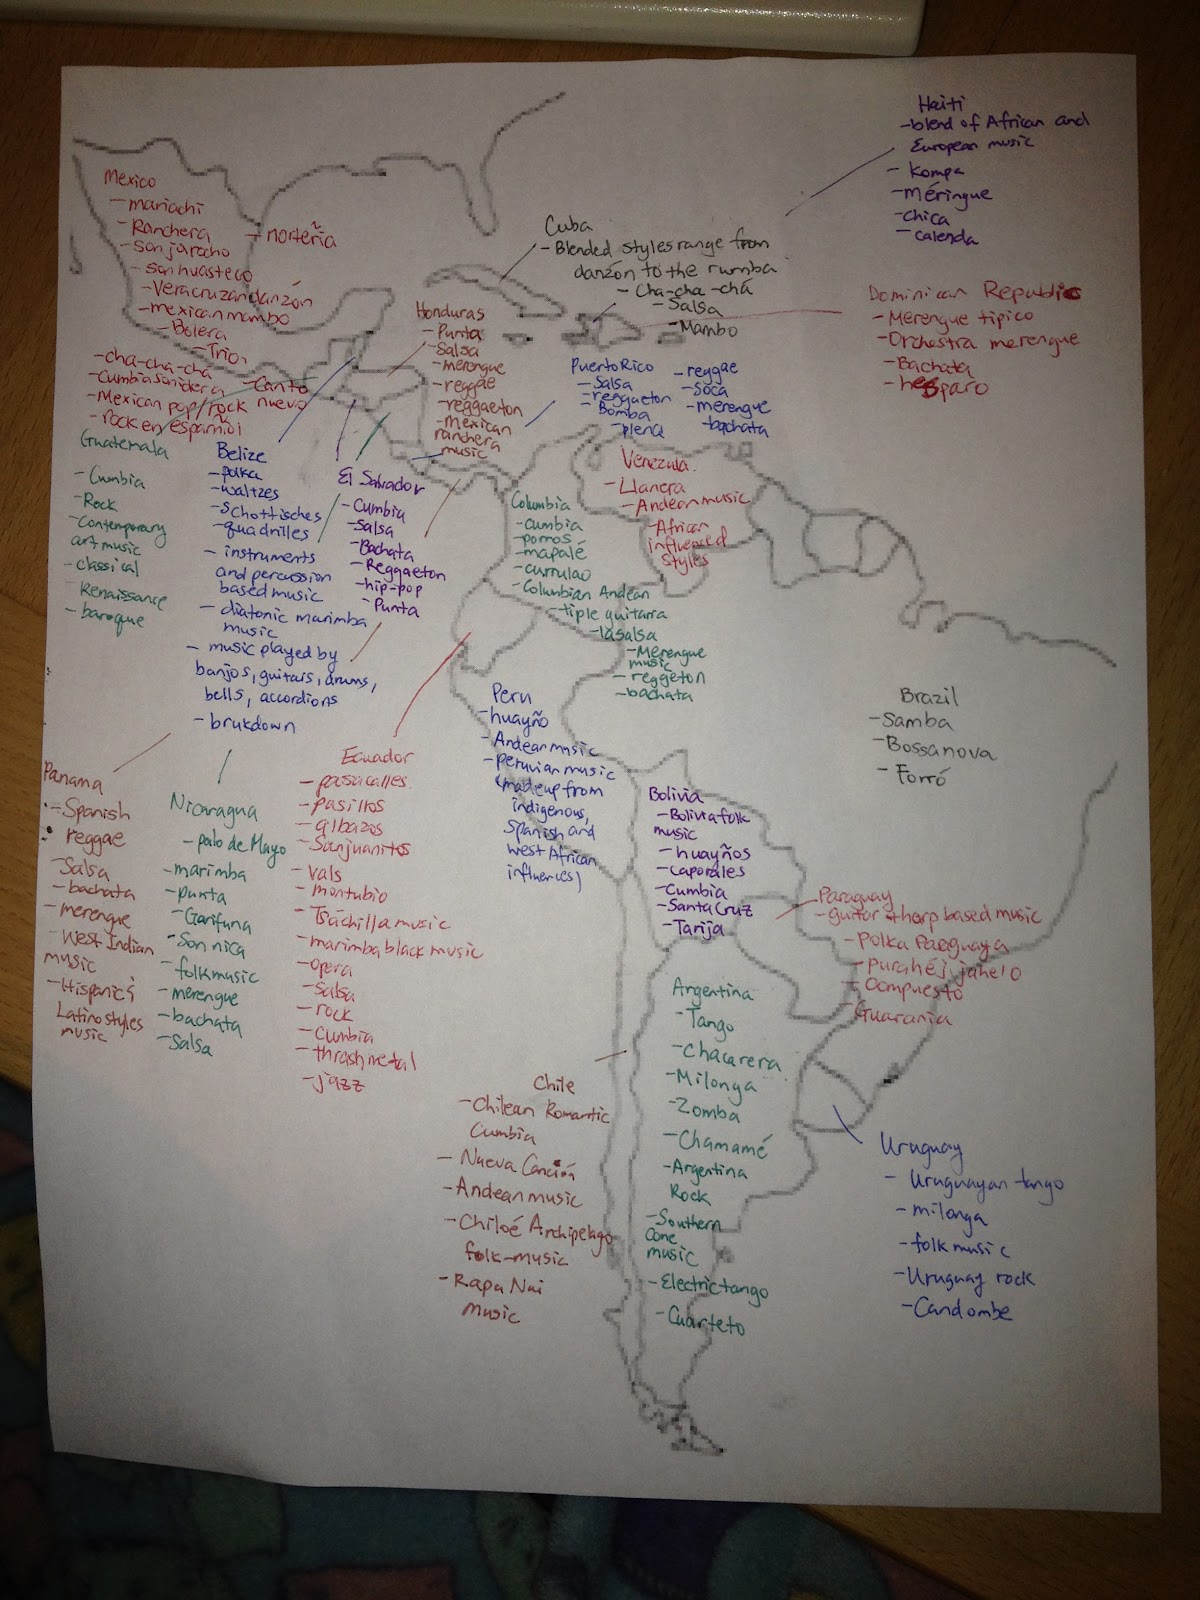 Mexico
- mariachi
- Ranchera
- norteña
- son jarocho
- son huasteco
- Veracruzan danzón
- mexican mambo
- Bolera
- Trio,
- cha-cha-chá
- Cumbia sonidera
- Canto
nuevo
- Mexican pop/rock
- rock en español
Haiti
- blend of African and
European music
- Kompa
- méringue
- chica
- calenda
Cuba
- Blended styles range from
danzón to the rumba
- Cha-cha-chá
- Salsa
- Mambo
Dominican Republic
- Merengue tipico
- Orchestra merengue
- Bachata
Honduras
- Punta
- Salsa
- merengue
- reggae
- reggaeton
- Mexican
ranchera
music
Puerto Rico
- Salsa
- reggaeton
- Bomba
- plena
- reggae
- soca
- merengue
- bachata
Guatemala
- Cumbia
- Rock
- Contemporary
art music
- Classical
- Renaissance
- baroque
Belize
- polka
- waltzes
- Schottisches
- quadrilles
- instruments
and percussion
based music
- diatonic marimba
music
- music played by
banjos, guitars, drums,
bells, accordions
- brukdown
El Salvador
- Cumbia
- Salsa
- Bachata
- Reggaeton
- hip-pop
- Punta
Columbia
- cumbia
- porros
- mapalé
- currulao
- Columbian Andean
- tiple guitarra
- la salsa
- Merengue
music
- reggeton
- bachata
Venezula
- Llanera
- Andean music
- African
influenced
styles
Panama
- Spanish
reggae
Salsa
- bachata
- merengue
- West Indian
music
- Hispanic &
Latino styles
music
Nicaragua
- palo de Mayo
- marimba
- punta
- Garifuna
- Son nica
- folk music
- merengue
- bachata
- Salsa
Ecuador
- pasacalles
- pasillos
- albazos
- Sanjuanitos
- vals
- montubio
- Tsáchilla music
- marimba black music
- opera
- Salsa
- rock
- Cumbia
- thrash metal
- jazz
Peru
- huayño
- Andean music
- peruvian music
(made up from
indigenous,
Spanish and
West African
influences)
Brazil
- Samba
- Bossanova
- Forró
Bolivia
- Bolivia folk
music
- huayños
- Caporales
- Cumbia
- Santa Cruz
- Tarija
Paraguay
- guitar & harp based music
- Polka Paraguaya
- Purahéi jahe'o
- Compuesto
- Guarania
Argentina
- Tango
- Chacarera
- Milonga
- Zomba
- Chamamé
- Argentina
Rock
- Southern
cone
music
- Electric tango
- Cuarteto
Chile
- Chilean Romantic
Cumbia
- Nueva Canción
- Andean music
- Chiloé Archipelago
folk-music
- Rapa Nui
music
Uruguay
- Uruguayan tango
- milonga
- folk music
- Uruguay rock
- Candombe